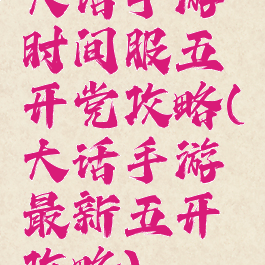 大话手游
时间服五
开党攻略(
大话手游
最新五开
攻略)